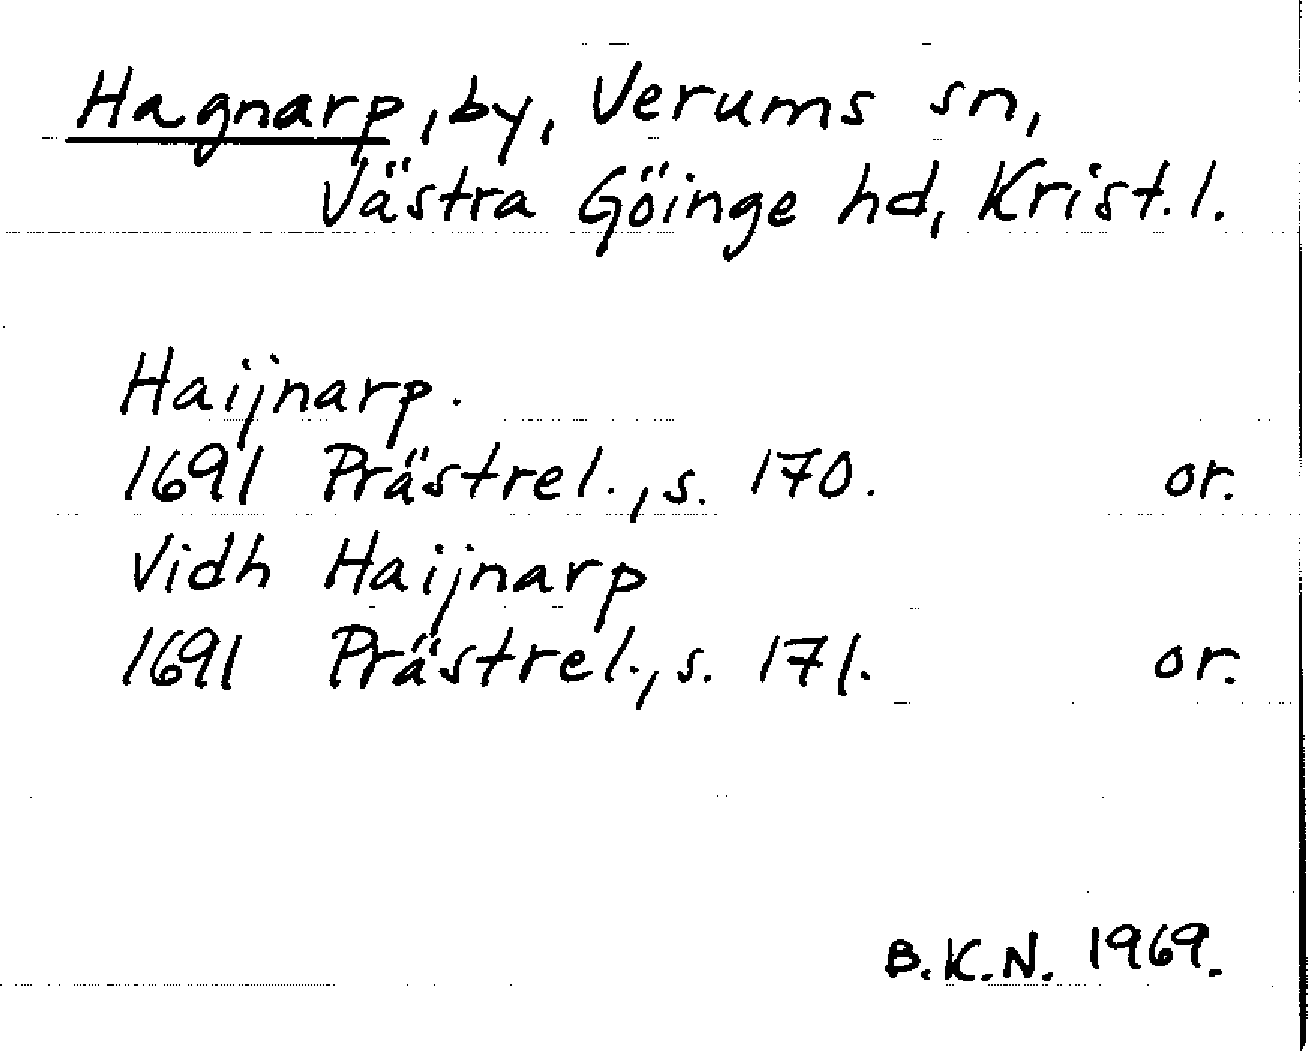 Hagnarp, by, Verums sn,
Västra Göinge hd, Krist. l.
Haijnarp.
1691 Prästrel., s. 170. or.
Vidh Haijnarp
1691 Prästrel., s. 171. or.
B.K.N. 1969.